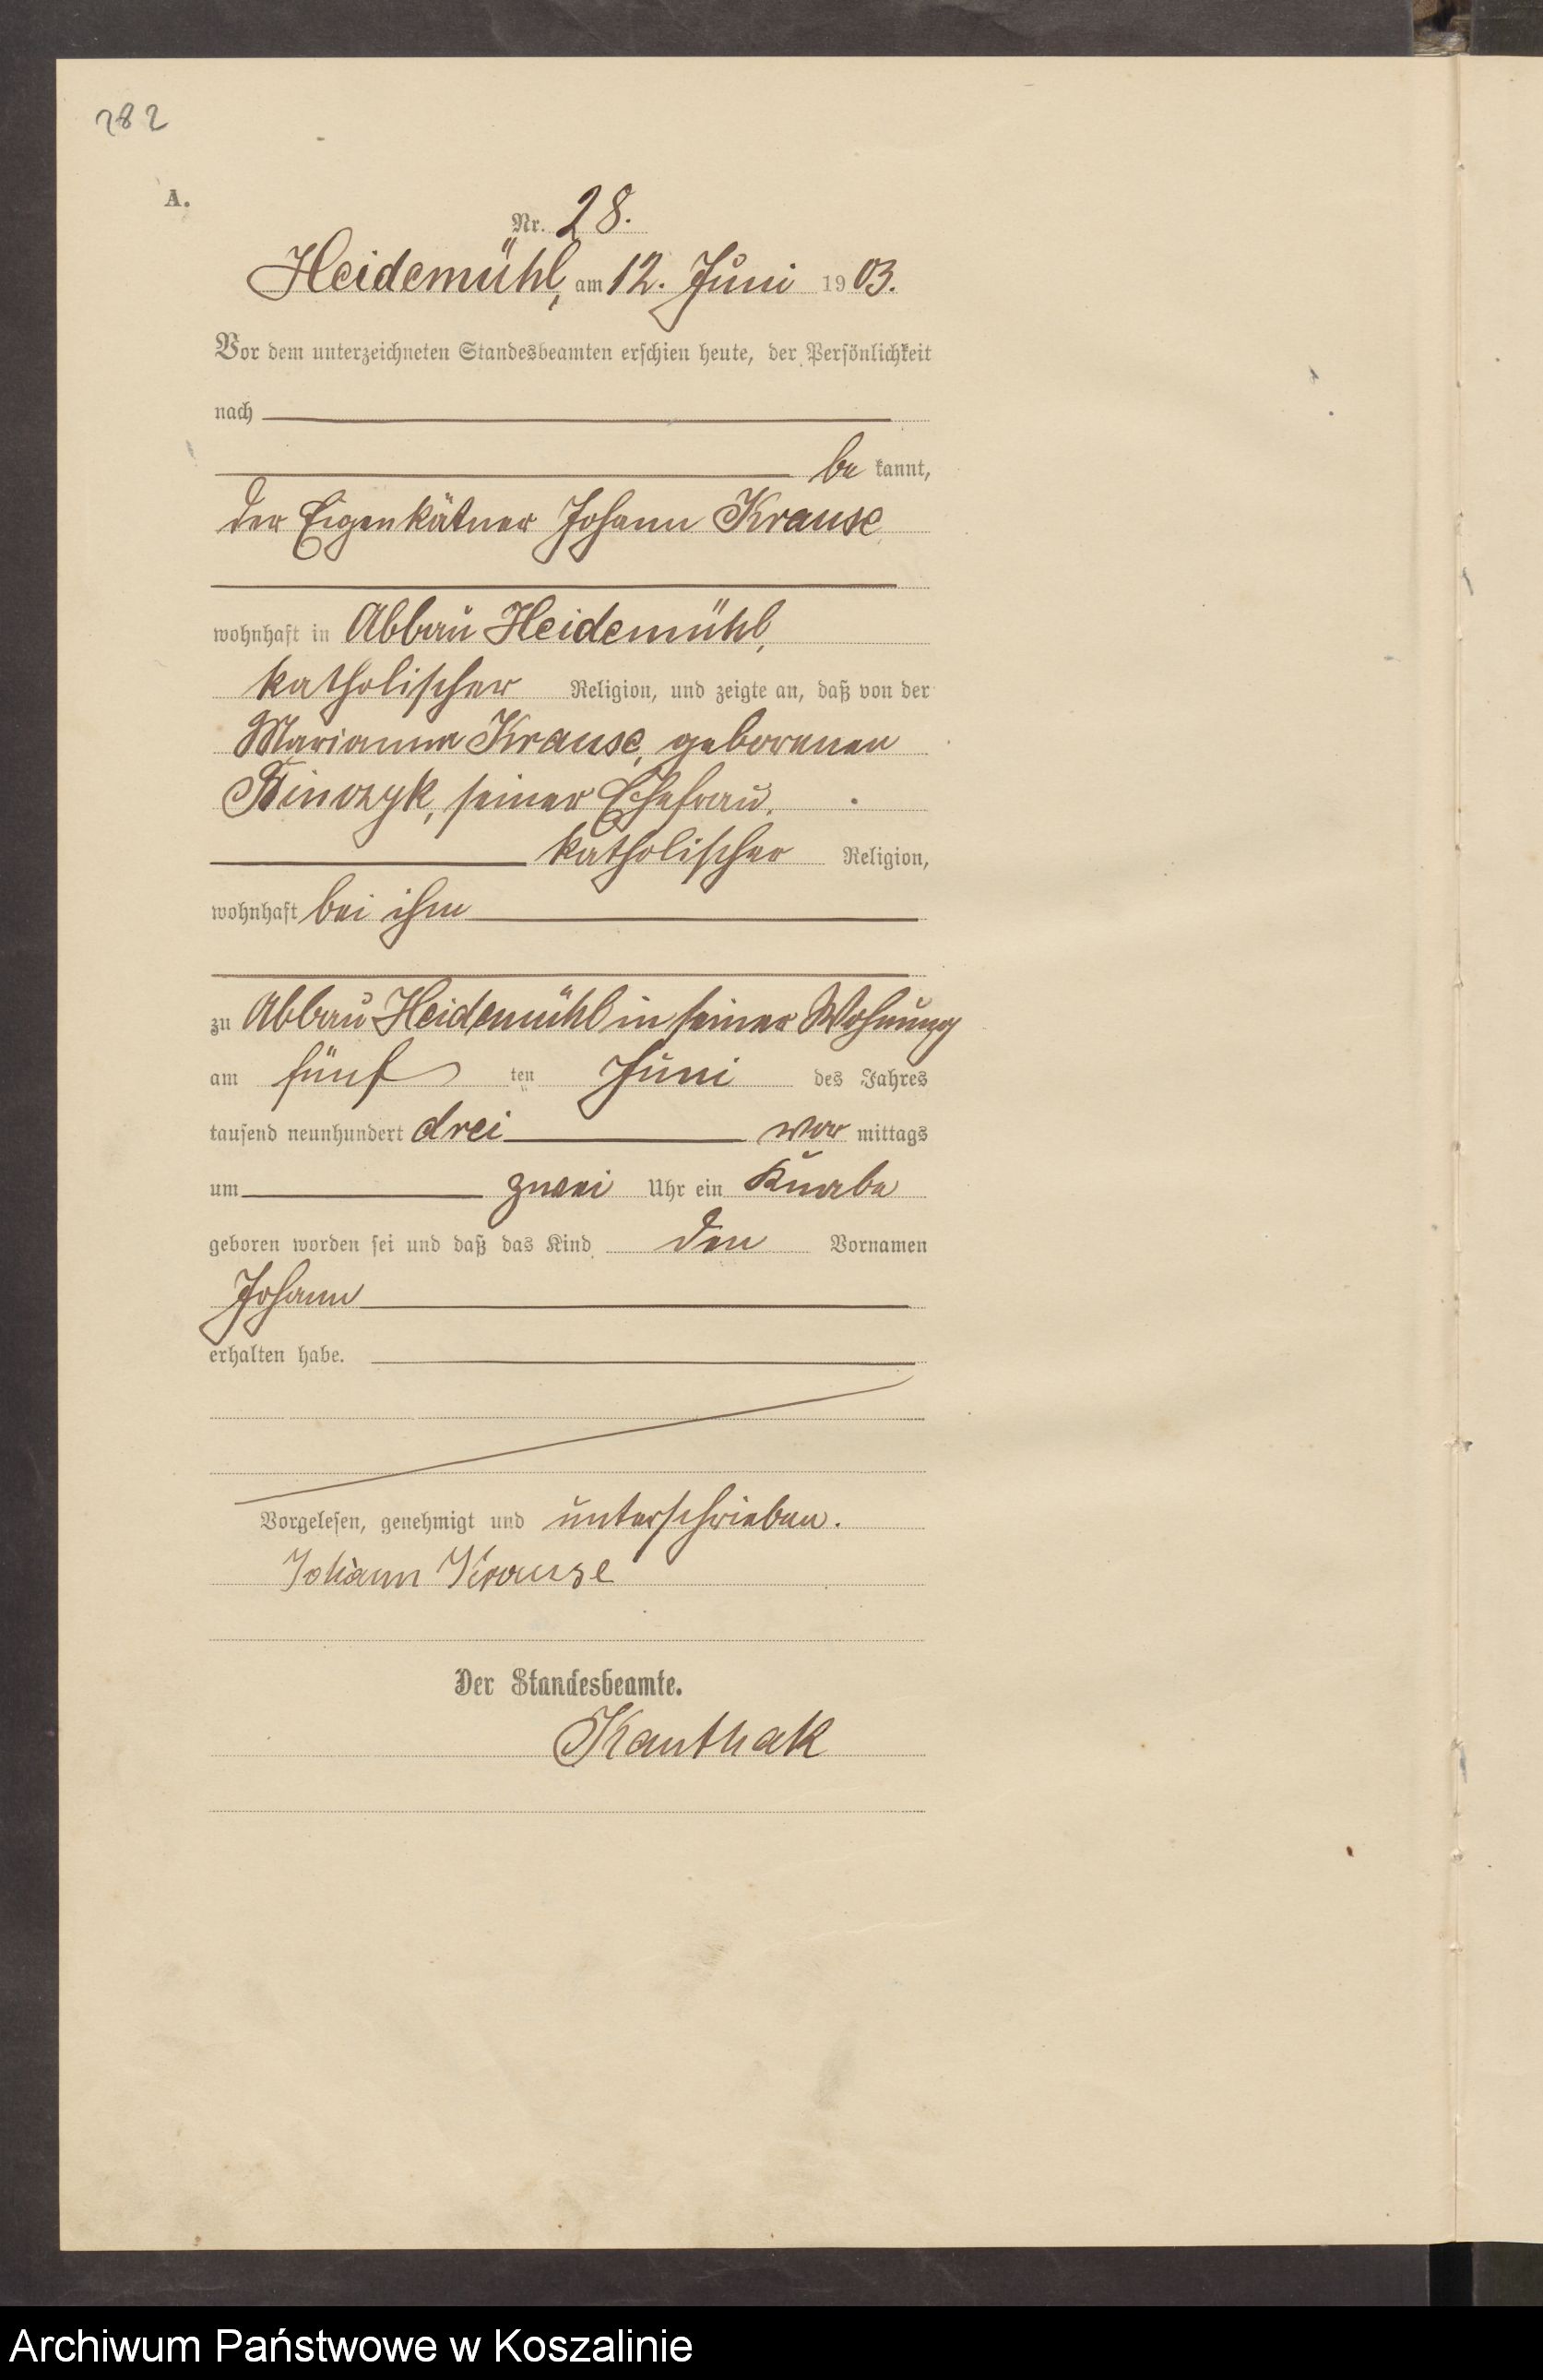 282
A.
Nr. 28.
Heidemühl, am 12. Juni 1903.
Vor dem unterzeichneten Standesbeamten erschien heute, der Persönlichkeit
nach
be kannt,
der Eigenkätner Johann Krause
wohnhaft in Abbau Heidemühl,
katholischer Religion, und zeigte an, daß von der
Marianna Krause, geborenen
seiner Ehefrau,
katholischer Religion,
wohnhaft bei ihm
zu Abbau Heidemühl in seiner Wohnung
am fünf ten Juni des Jahres
tausend neunhundert drei vor mittags
um zwei Uhr ein Knabe
geboren worden sei und daß das Kind den Vornamen
Johann
erhalten habe.
Vorgelesen, genehmigt und unterschrieben.
Johann Krause
Der Standesbeamte.
Kanthak
Archiwum Państwowe w Koszalinie